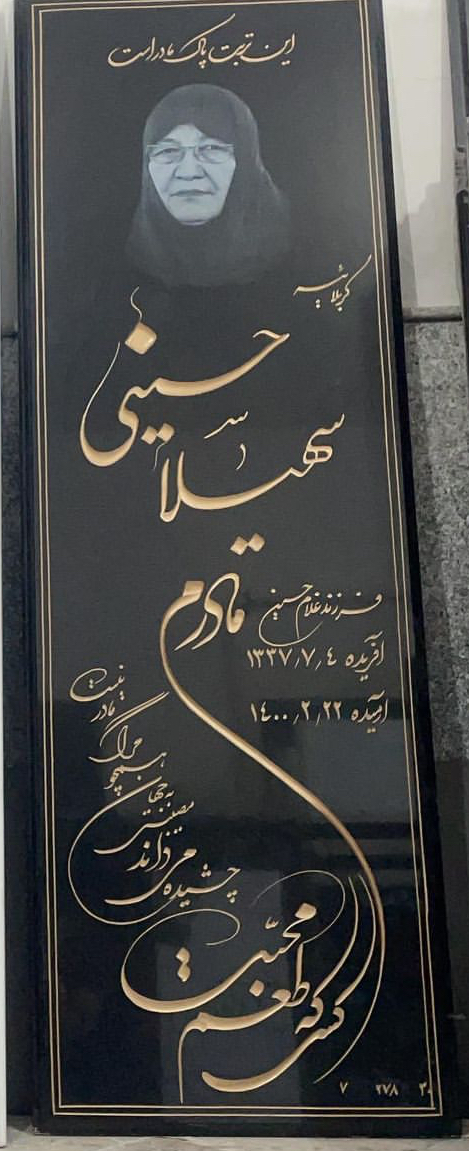 این تربت پاک مادر است
کربلائیه
سهیلا حسینی
مادرم
فرزند غلامحسین
آفریده ۱۳۳۷/۷/٤
آرمیده ۱٤۰۰/۲/۲۲
کسی که طعم محبت
چشیده می‌داند
مصیبتی
به جهان
همچو
مرگ
مادر
نیست
۷ ۲۷۸ ۳۰